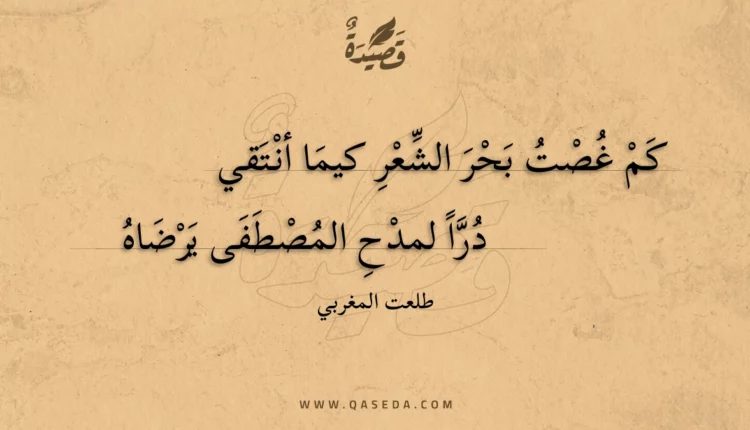 قَصِيدَةٌ
كَمْ غُصْتُ بَحْرَ الشِّعْرِ كيمَا أنْتَقي
دُرَّاً لمدْحِ المُصْطَفَى يَرْضَاهُ
طلعت المغربي
WWW.QASEDA.COM